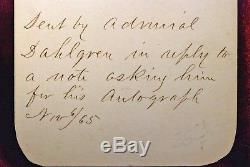 Sent by Admiral
Dahlgren in reply to
a note asking him
for his Autograph
Nov 6/65